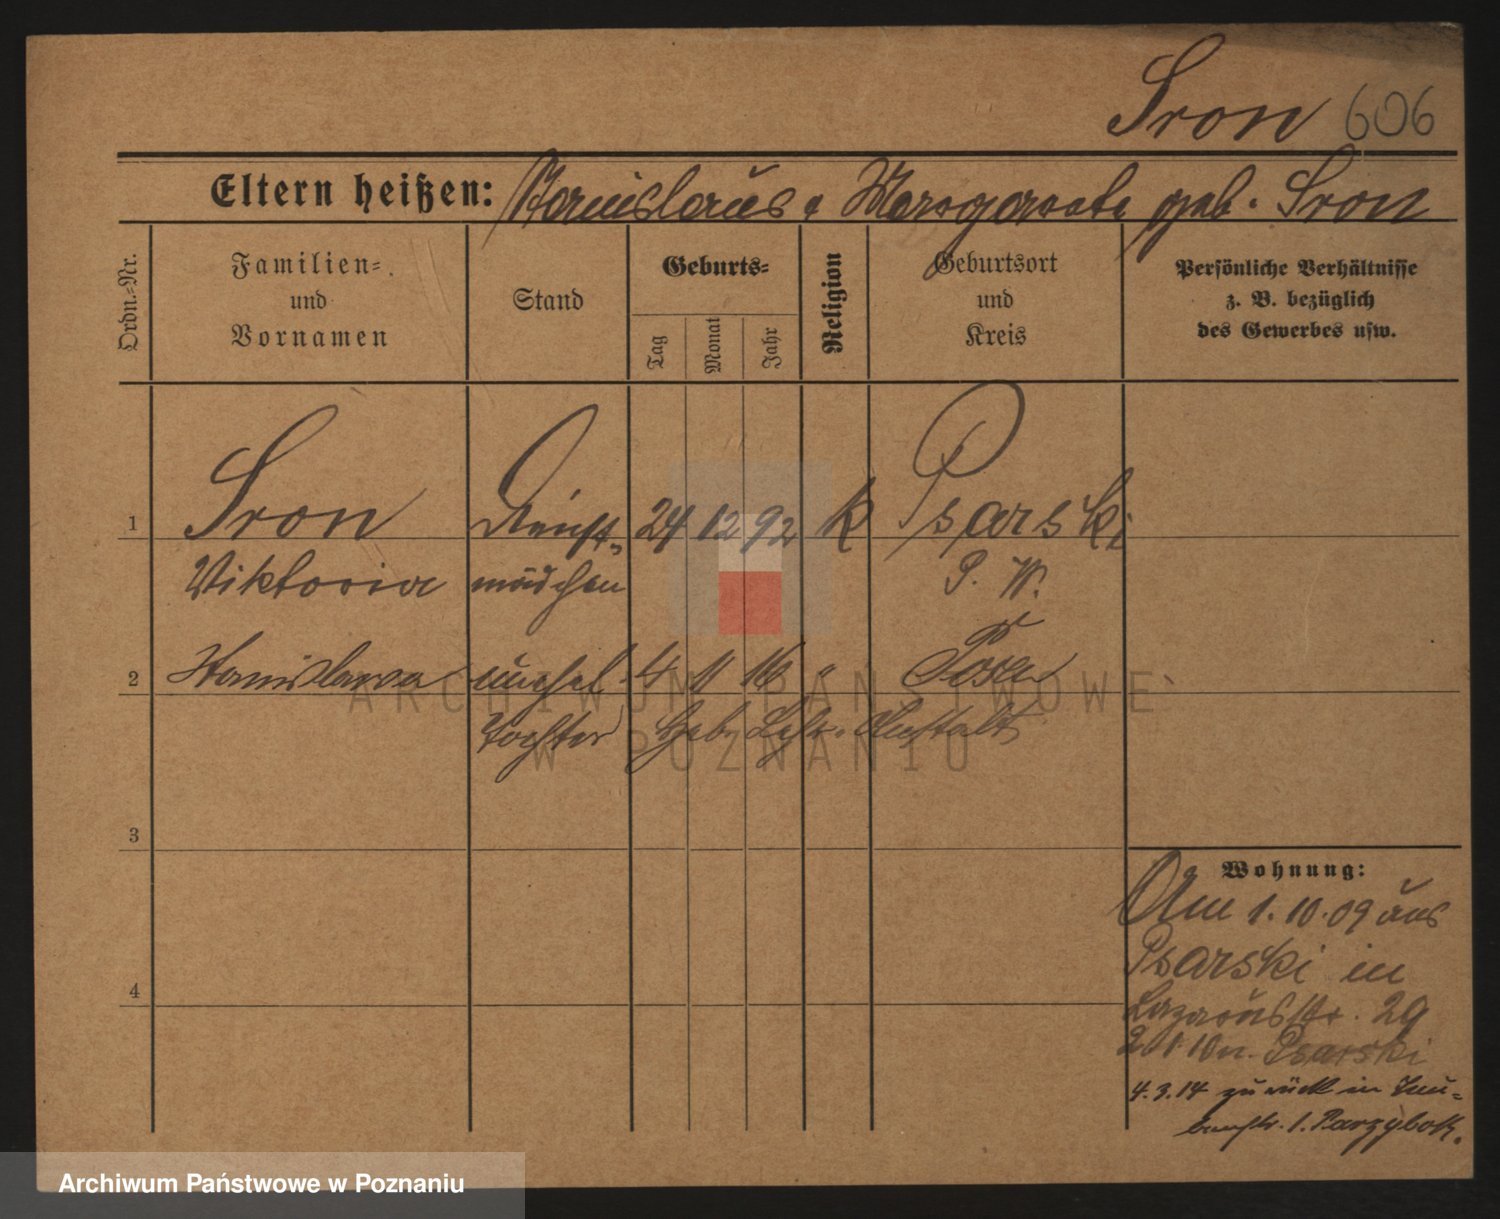 Sron 606
Eltern heißen: Stanislaus & Margareta geb. Sron
Ordn.-Nr.
Familien-
und
Vornamen
Stand
Geburts-
Tag
Monat
Jahr
Religion
Geburtsort
und
Kreis
Persönliche Verhältnisse
z. B. bezüglich
des Gewerbes usw.
1 Sron Dienst- 24 12 92 k Psarski
Viktoria mädchen P. W.
2 Stanislawa unehel. 4 11 16 " Posen
Tochter Heb. Lehr. Anstalt
3
4
Wohnung:
Am 1.10.09 aus
Psarski in
Lazarusstr. 29
n. Psarski
4.3.14 zurück in
1. Parzybok.
ARCHIWUM PAŃSTWOWE
W POZNANIU
Archiwum Państwowe w Poznaniu